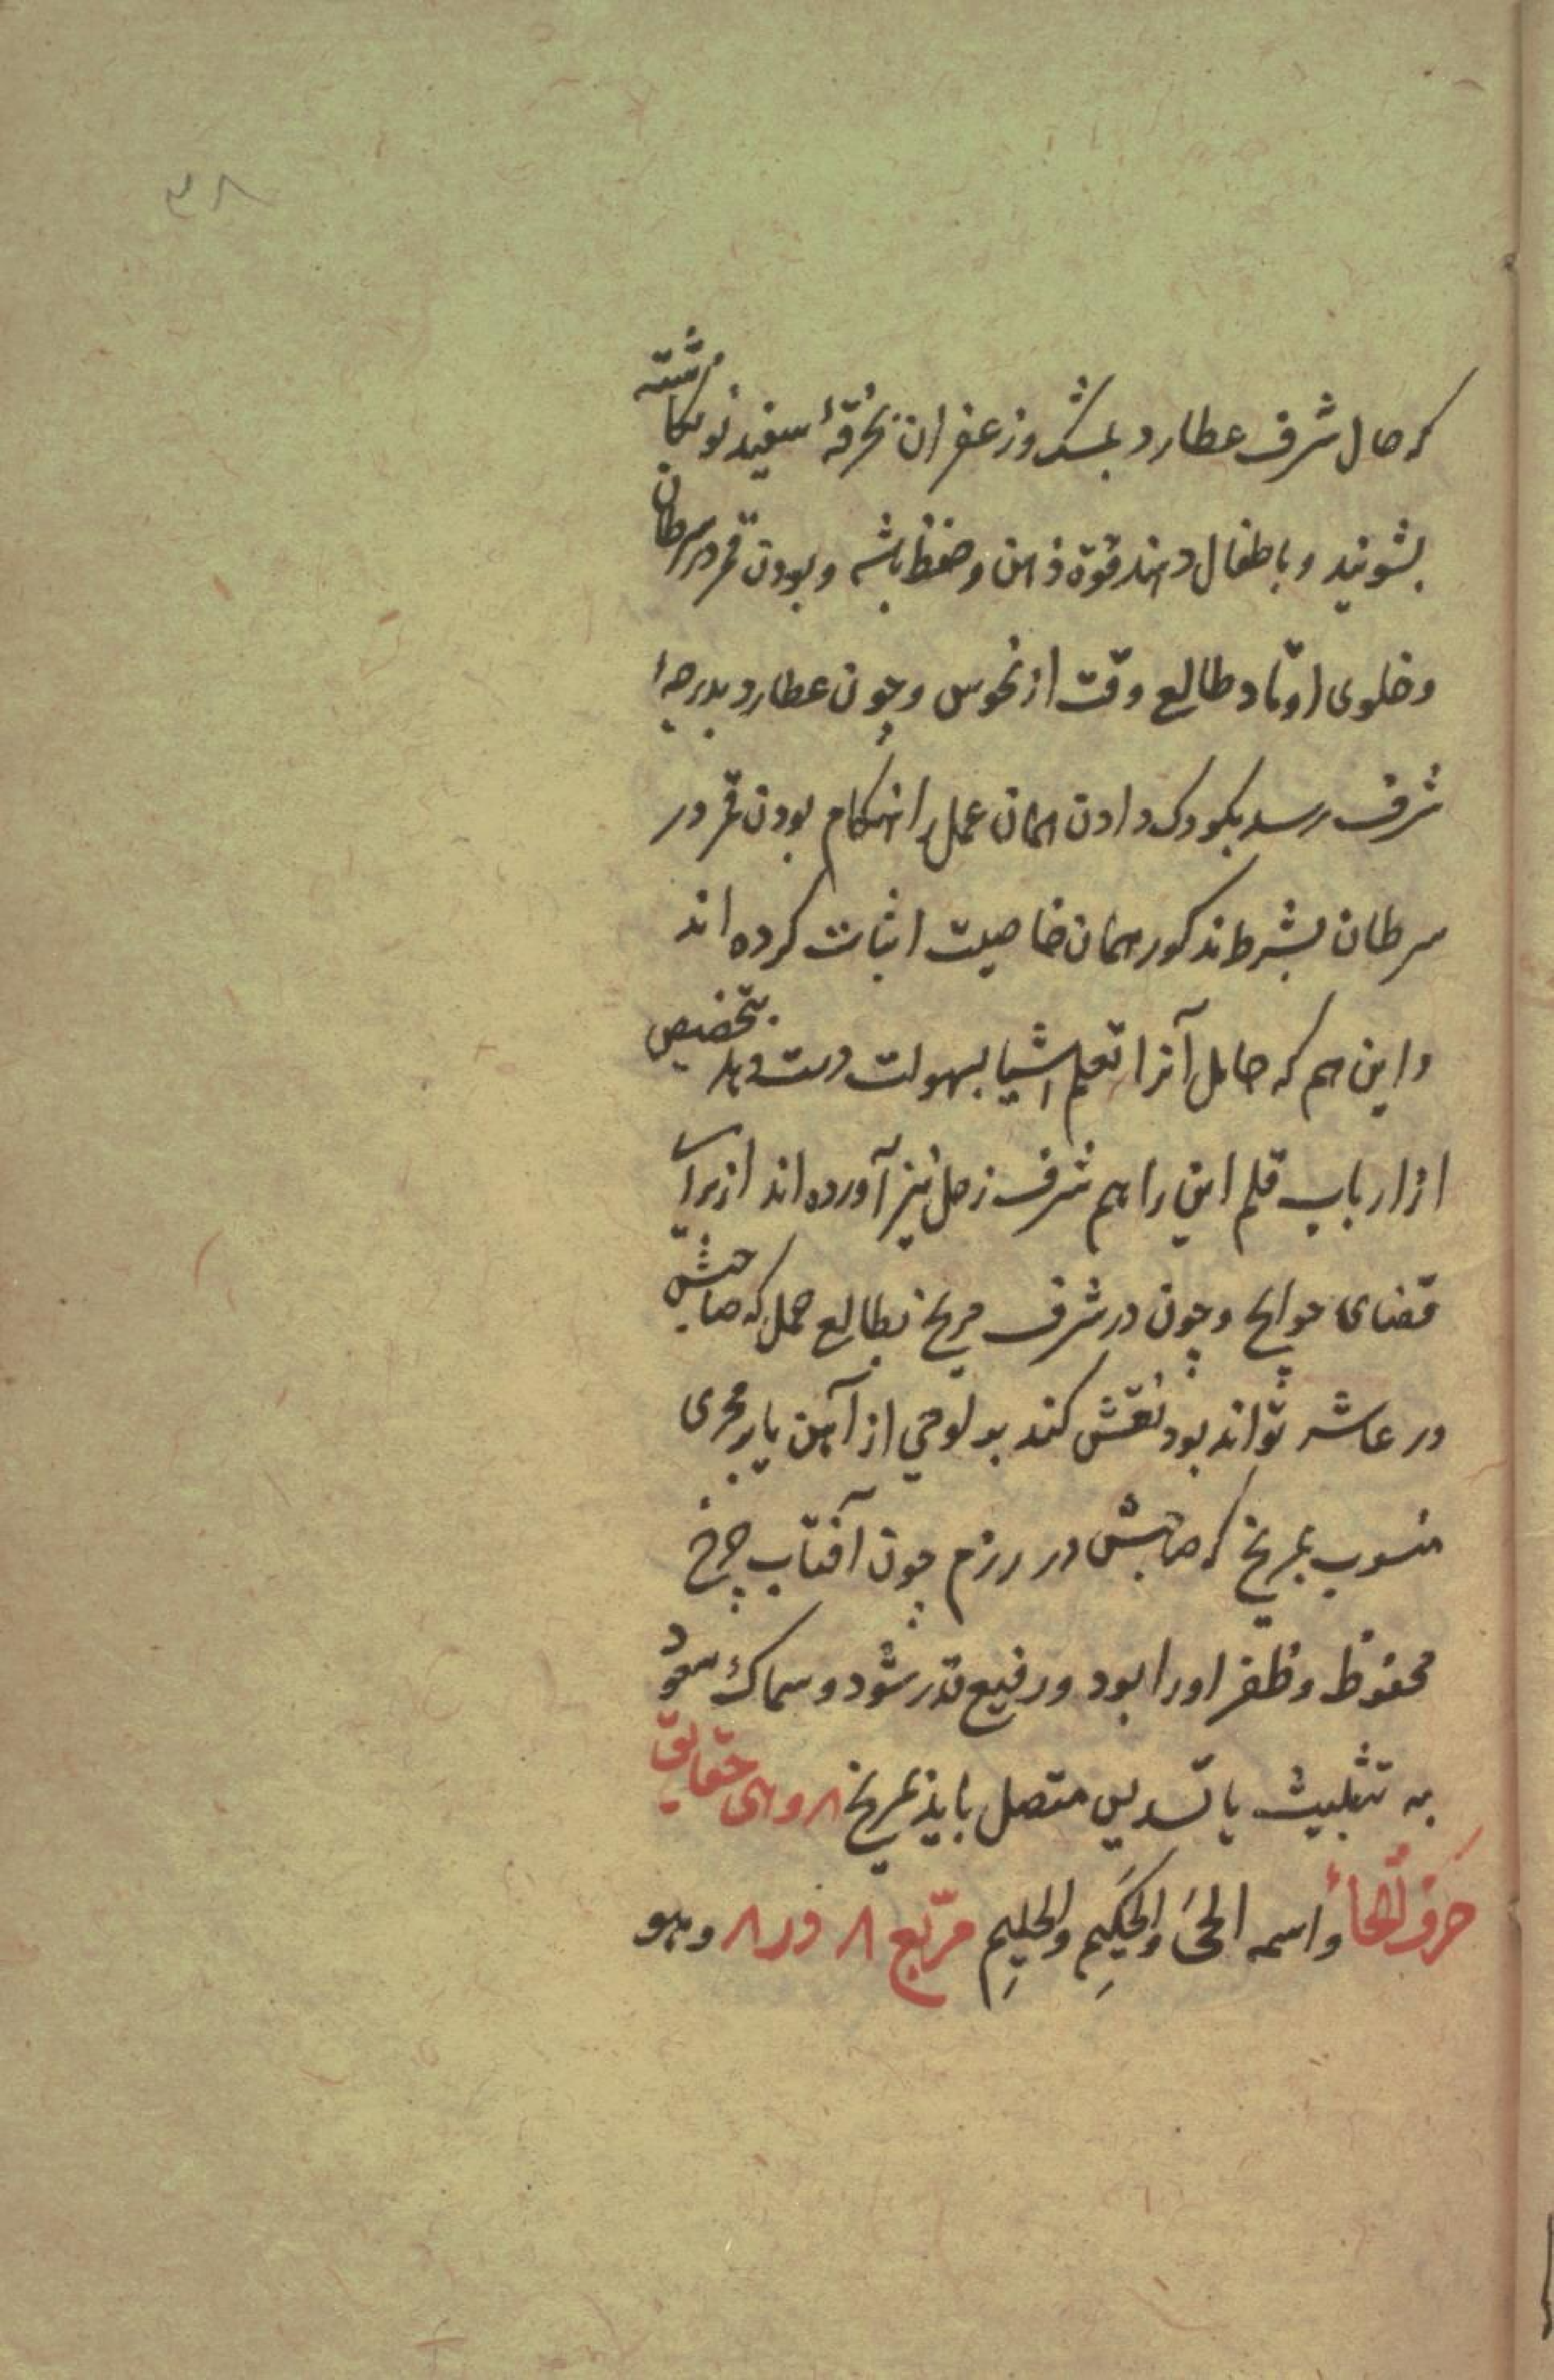 ۳۸
که حال شرف عطارد بمشک و زعفران بخرقهٔ سفید نو نکاشته
بشویند و باطفال دهند قوّة ذهن و حفظ باشد و بودن قمر در سرطان
و خلوی اوتاد طالع وقت از نحوس و چون عطارد بدرجهٔ
شرف رسد بکودک دادن همان عمل را هنکام بودن قمر در
سرطان بشرط مذکور همان خاصیت اثبات کرده اند
و این هم که حامل آنرا تعلم اشیا بسهولت دست دهد بتخصیص
از ارباب قلم این را هم شرف زحل نیز آورده اند از برای
قضای حوایج و چون در شرف مریخ بطالع حمل که صاحبش
در عاشر تواند بود نقش کند بر لوحی از آهن یا بر حجری
منسوب بمریخ که صاحبش در رزم چون آفتاب چرخ
محفوظ و ظفر او را بود و رفیع قدر شود و سماک سعود
به تثلیث یا تسدیس متصل باید بمریخ ۸ و هی حقایق
حَرفُ الحاء و اسمه الحیَ والحَکِیمِ والحلیِمِ مرّبع ۸ در ۸ و هو